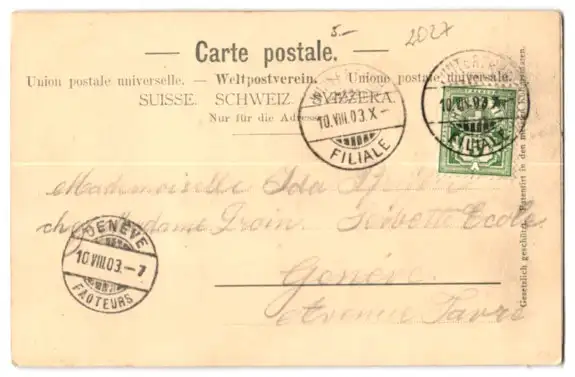 5.– 2027
— Carte postale. —
Union postale universelle. — Weltpostverein. — Unione postale universale.
SUISSE. SCHWEIZ. SVIZZERA.
Nur für die Adresse
10.VIII.03.X–
FILIALE
10.VIII.03.X
FILIALE
Mademoiselle Ida
chez Madame
Genève
Avenue
GENÈVE
10 VIII.03.–7
FACTEURS
Gesetzlich geschützt. Patentirt in den meisten